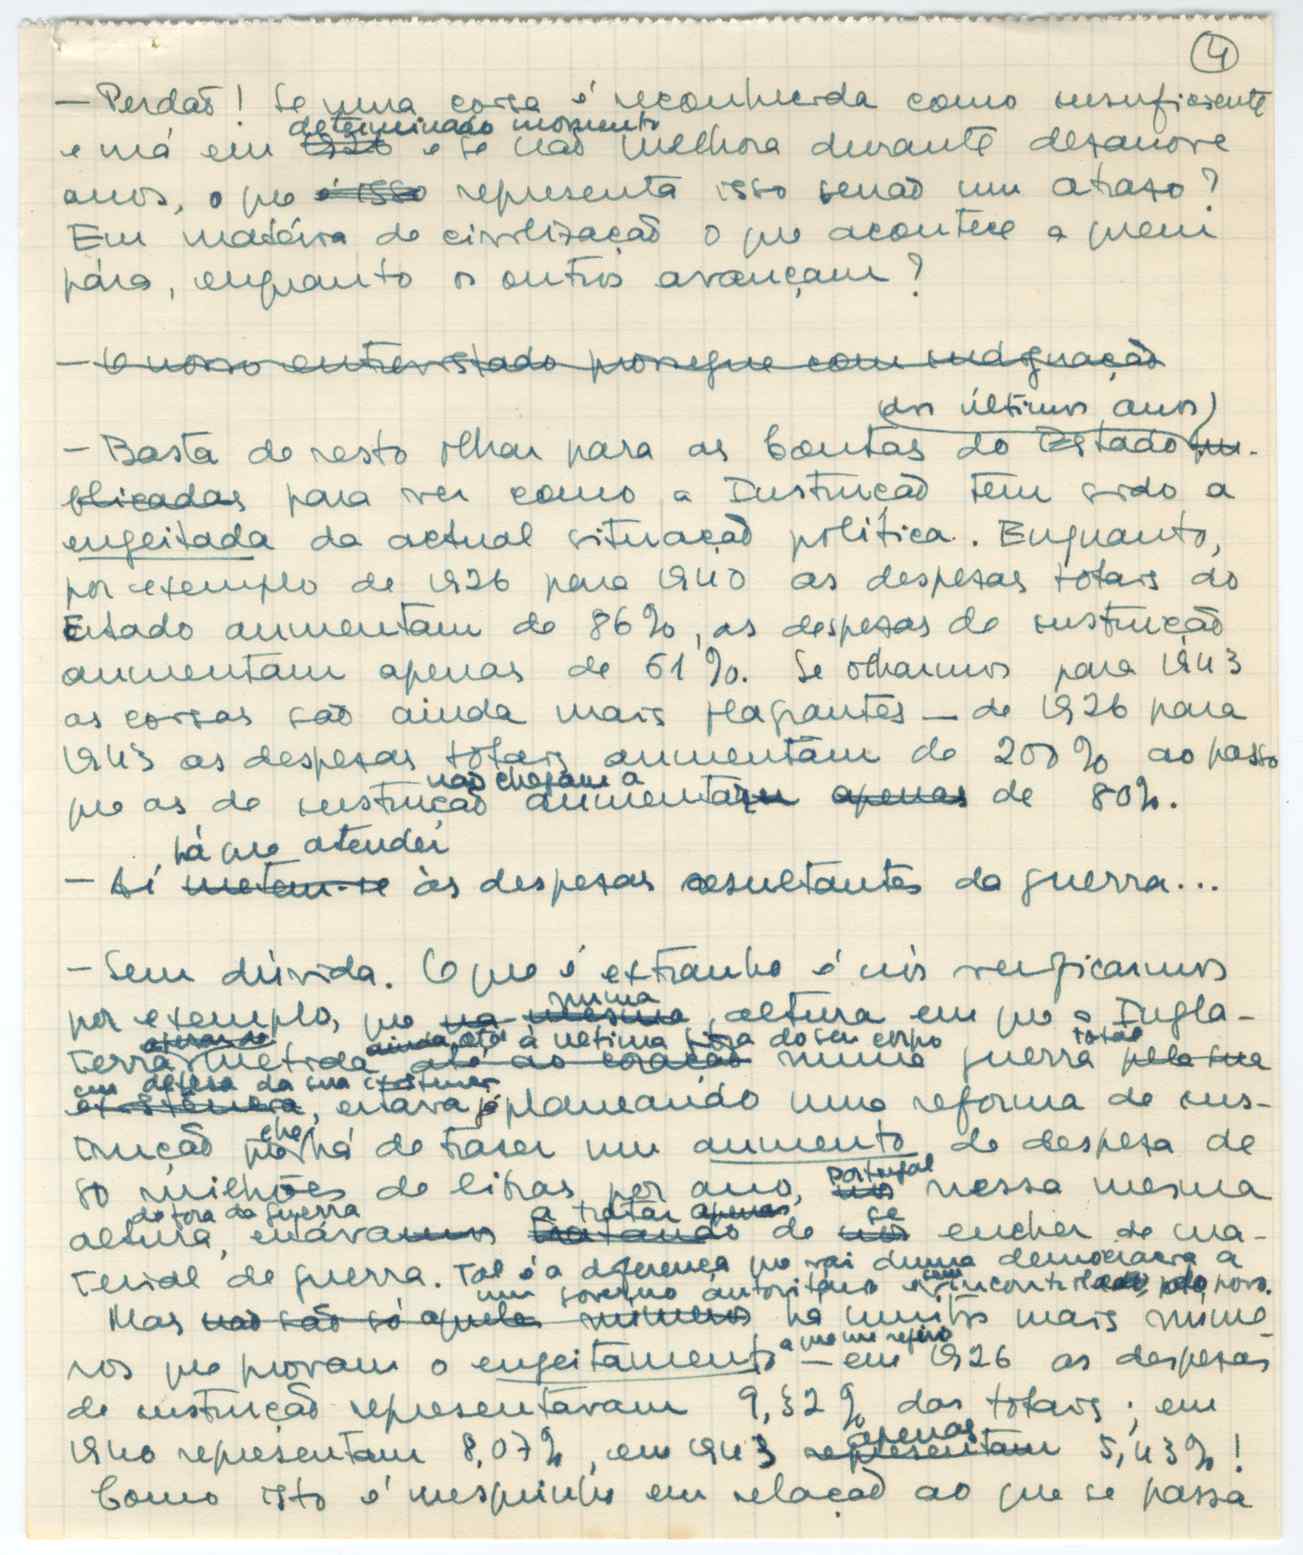 4
— Perdão! Se uma coisa é reconhecida como insuficiente
determinado momento
e má em 1926 e se não melhora durante dezanove
anos, o que é isso representa isso senão um atraso?
Em matéria de civilização o que acontece a quem
pára, enquanto os outros avançam?
— O nosso entrevistado prossegue com indignação
(dos últimos anos)
— Basta de resto olhar para as Contas do Estado pu-
blicadas para ver como a Instrução tem sido a
engeitada da actual situação política. Enquanto,
por exemplo de 1926 para 1940 as despesas totais do
Estado aumentam de 86%, as despesas de instrução
aumentam apenas de 61%. Se olharmos para 1943
as coisas são ainda mais flagrantes — de 1926 para
1943 as despesas totais aumentam de 200% ao passo
não chegam a
que as de instrução aumentam apenas de 80%.
há que atender
— Aí metem-se às despesas resultantes da guerra...
— Sem dúvida. O que é extranho é nós verificarmos
numa
por exemplo, que na mesma altura em que a Ingla-
ainda até à última gota do seu corpo total
terra metida até ao coração numa guerra pela sua
em defesa da sua existência
existência, estava já planeando uma reforma de ins-
che
trução que há de trazer um aumento de despesa de
Portugal
80 milhões de libras por ano, nós nessa mesma
de fora da guerra a tratar apenas se
altura, estávamos tratando de nós encher de ma-
terial de guerra. Tal é a diferença que vai duma democracia a
um governo autoritário e incontrolado pelo povo.
Mas não são só aqueles números há muitos mais núme-
a que me refiro
ros que provam o engeitamento — em 1926 as despesas
de instrução representavam 9,32% das totais; em
apenas
1940 representam 8,07%, em 1943 representam 5,43%!
Como isto é mesquinho em relação ao que se passa